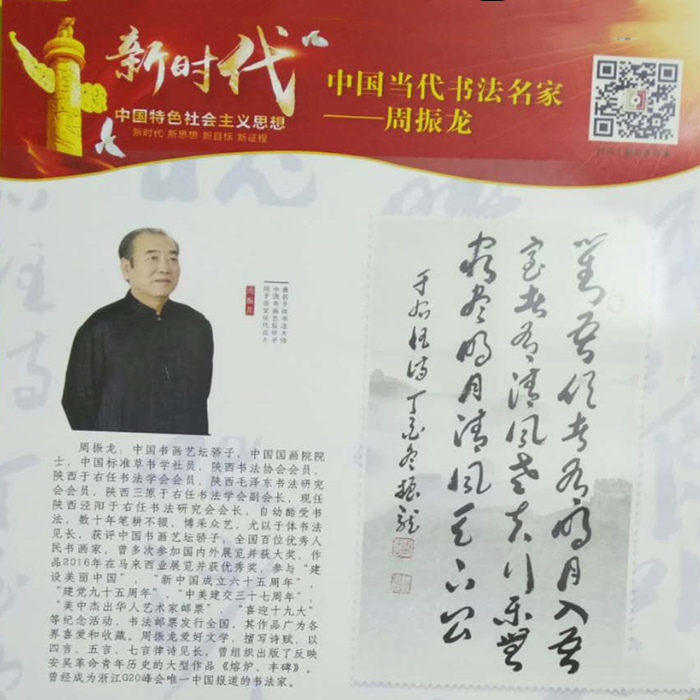 新时代
中国特色社会主义思想
新时代 新思想 新目标 新征程
中国当代书法名家
——周振龙
著名于体书法大师
中国书画艺坛骄子
周振龙
對吾飲者有明月入吾
室者有清風老夫行樂無
窮盡明月清風天下公
于右任诗 丁酉冬 振龍
周振龙:中国书画艺坛骄子,中国国画院院
士,中国标准草书学社员,陕西书法协会会员,
陕西于右任书法学会会员,陕西毛泽东书法研究
会会员,陕西三原于右任书法学会副会长,现任
陕西泾阳于右任书法研究会会长,自幼酷受书
法,数十年笔耕不辍,博采众艺,尤以于体书法
见长,获评中国书画艺坛骄子,全国百位优秀人
民书画家,曾多次参加国内外展览并获大奖,作
品2016年在马来西业展览并获优秀奖,参与“建
设美丽中国”,“新中国成立六十五周年”,
“建党九十五周年”,“中美建交三十七周年”,
“美中杰出华人艺术家邮票”,“喜迎十九大”
等纪念活动,书法邮票发行全国,其作品广为各
界喜爱和收藏。周振龙爱好文学,擅写诗赋,以
四言、五言、七言律诗见长,曾组织出版了反映
安吴革命青年历史的大型作品《熔炉、丰碑》。
曾经成为浙江G20峰会唯一中国报道的书法家。